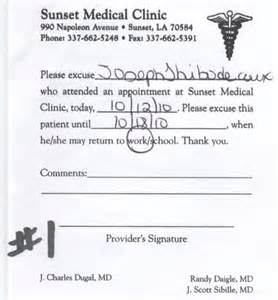 Sunset Medical Clinic
990 Napoleon Avenue • Sunset, LA 70584
Phone: 337-662-5248 • Fax: 337-662-5391
Please excuse Joseph Thibodeaux
who attended an appointment at Sunset Medical
Clinic, today, 10/12/10. Please excuse this
patient until 10/18/10, when
he/she may return to work/school. Thank you.
Comments:
#1
Provider's Signature
J. Charles Dugal, MD Randy Daigle, MD
J. Scott Sibille, MD